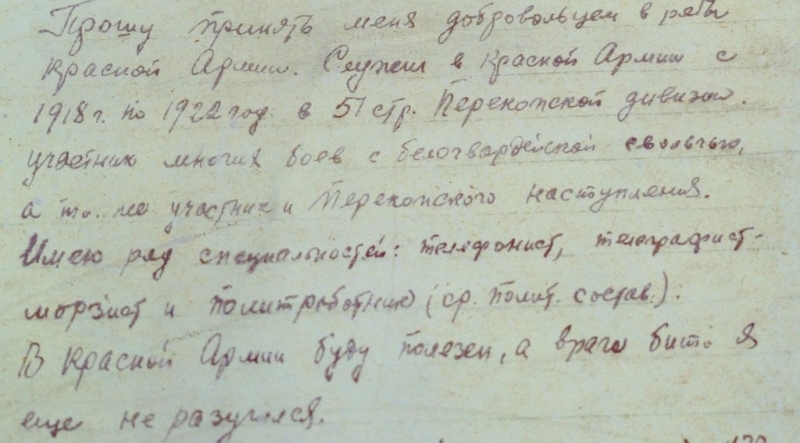 Прошу принять меня добровольцем в ряды
Красной Армии. Служил в Красной Армии с
1918 г. по 1922 год в 51 стр. Перекопской дивизии.
участник многих боев с белогвардейской сволочью,
а так же участник и Перекопского наступления.
Имею ряд специальностей: телефонист, телеграфист-
морзист и политработник (ср. полит. состав.).
В Красной Армии буду полезен, а врага бить я
еще не разучился.